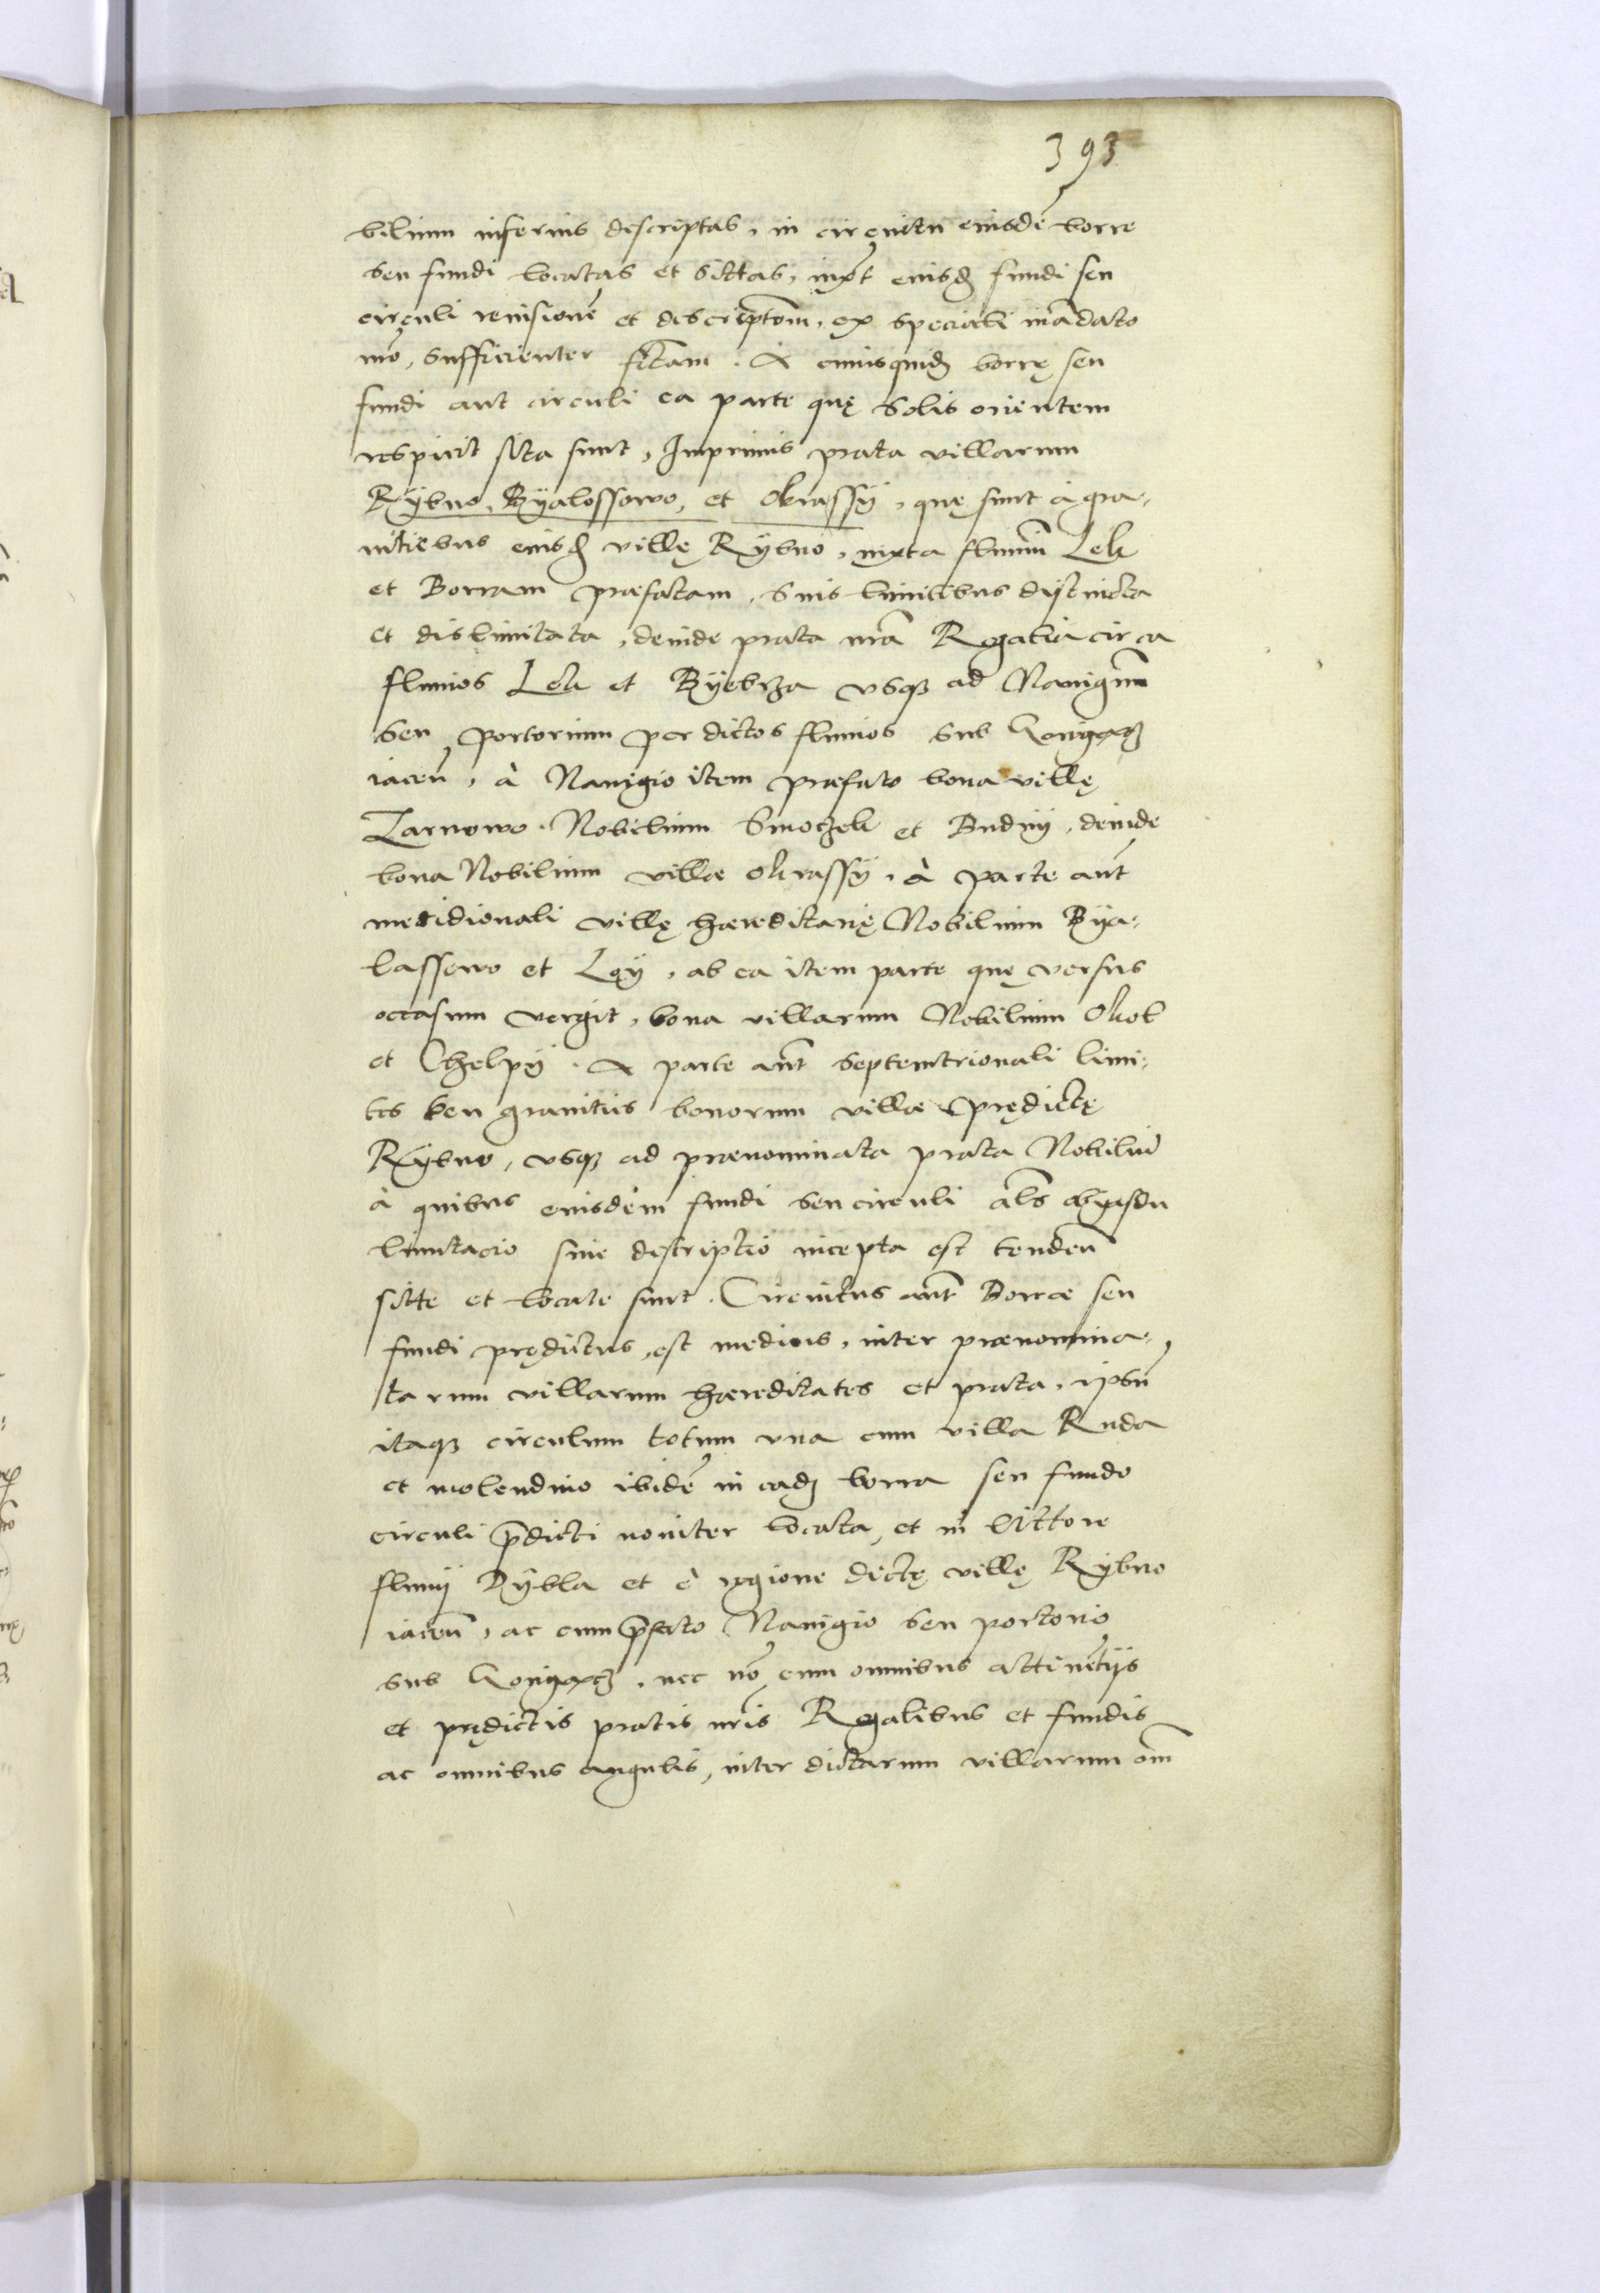 393
bilium inferius descriptas, in circuitu eiusdē borre
seu fundi locatas et sittas, iuxt eiusd fundi seu
circuli reuisionē et descriptōm, ex speciali mādato
nrō, sufficienter fctam. A cuiusquid borrę seu
fundi aut circuli ea parte quę solis orientem
respicit sita sunt, Imprimis prata villarum
Rÿbno, Bÿalossowo, et Okrassÿ, quę sunt à gra,
nitiebus eiusd villę Rÿbno, iuxta fluuiū Lek
et Borram præfatam, suis limitibus distincta
et dislimitata, deinde prata nrā Regalia circa
fluuios Lek et Bÿebrza vsq ad Nauigiū
seu portorium per dictos fluuios sub
iaceñ, à Nauigio item præfato bona villę
Zarnowo Nobilium Smoczek et Budnÿ, deinde
bona Nobilium villæ Okrassÿ, à parte aūt
meridionali villę hæreditarię Nobilium Bÿa,
lassowo et Loÿ, ab ea item parte quę versus
occasum vergit, bona villarum Nobilium Okol
et Chelpÿ. A parte aūt septemtrionali limi,
tes seu granities bonorum villæ prędictę
Rÿbno, vsq ad prænominata prata Nobiliū
à quibus eiusdem fundi seu circuli als
limitacio siue descriptio incepta est tendeñ
sitte et locate sunt. Circuitus aūt Borræ seu
fundi prędictus, est medius, inter prænomina,
tarum villarum hæreditates et prata, ipsū
itaq circulum totum vna cum villa Ruda
et molendino ibidē in ead borra seu fundo
circuli p̄dicti nouiter locata, et in littore
fluuÿ Dÿbla et è regione dictę villę Rÿbno
iaceñ, ac cum p̄fato Nauigio seu portorio
sub, nec nō cum omnibus attinētijs
et prędictis pratis nris Regalibus et fundis
ac omnibus angulis, inter dictarum villarum om̄